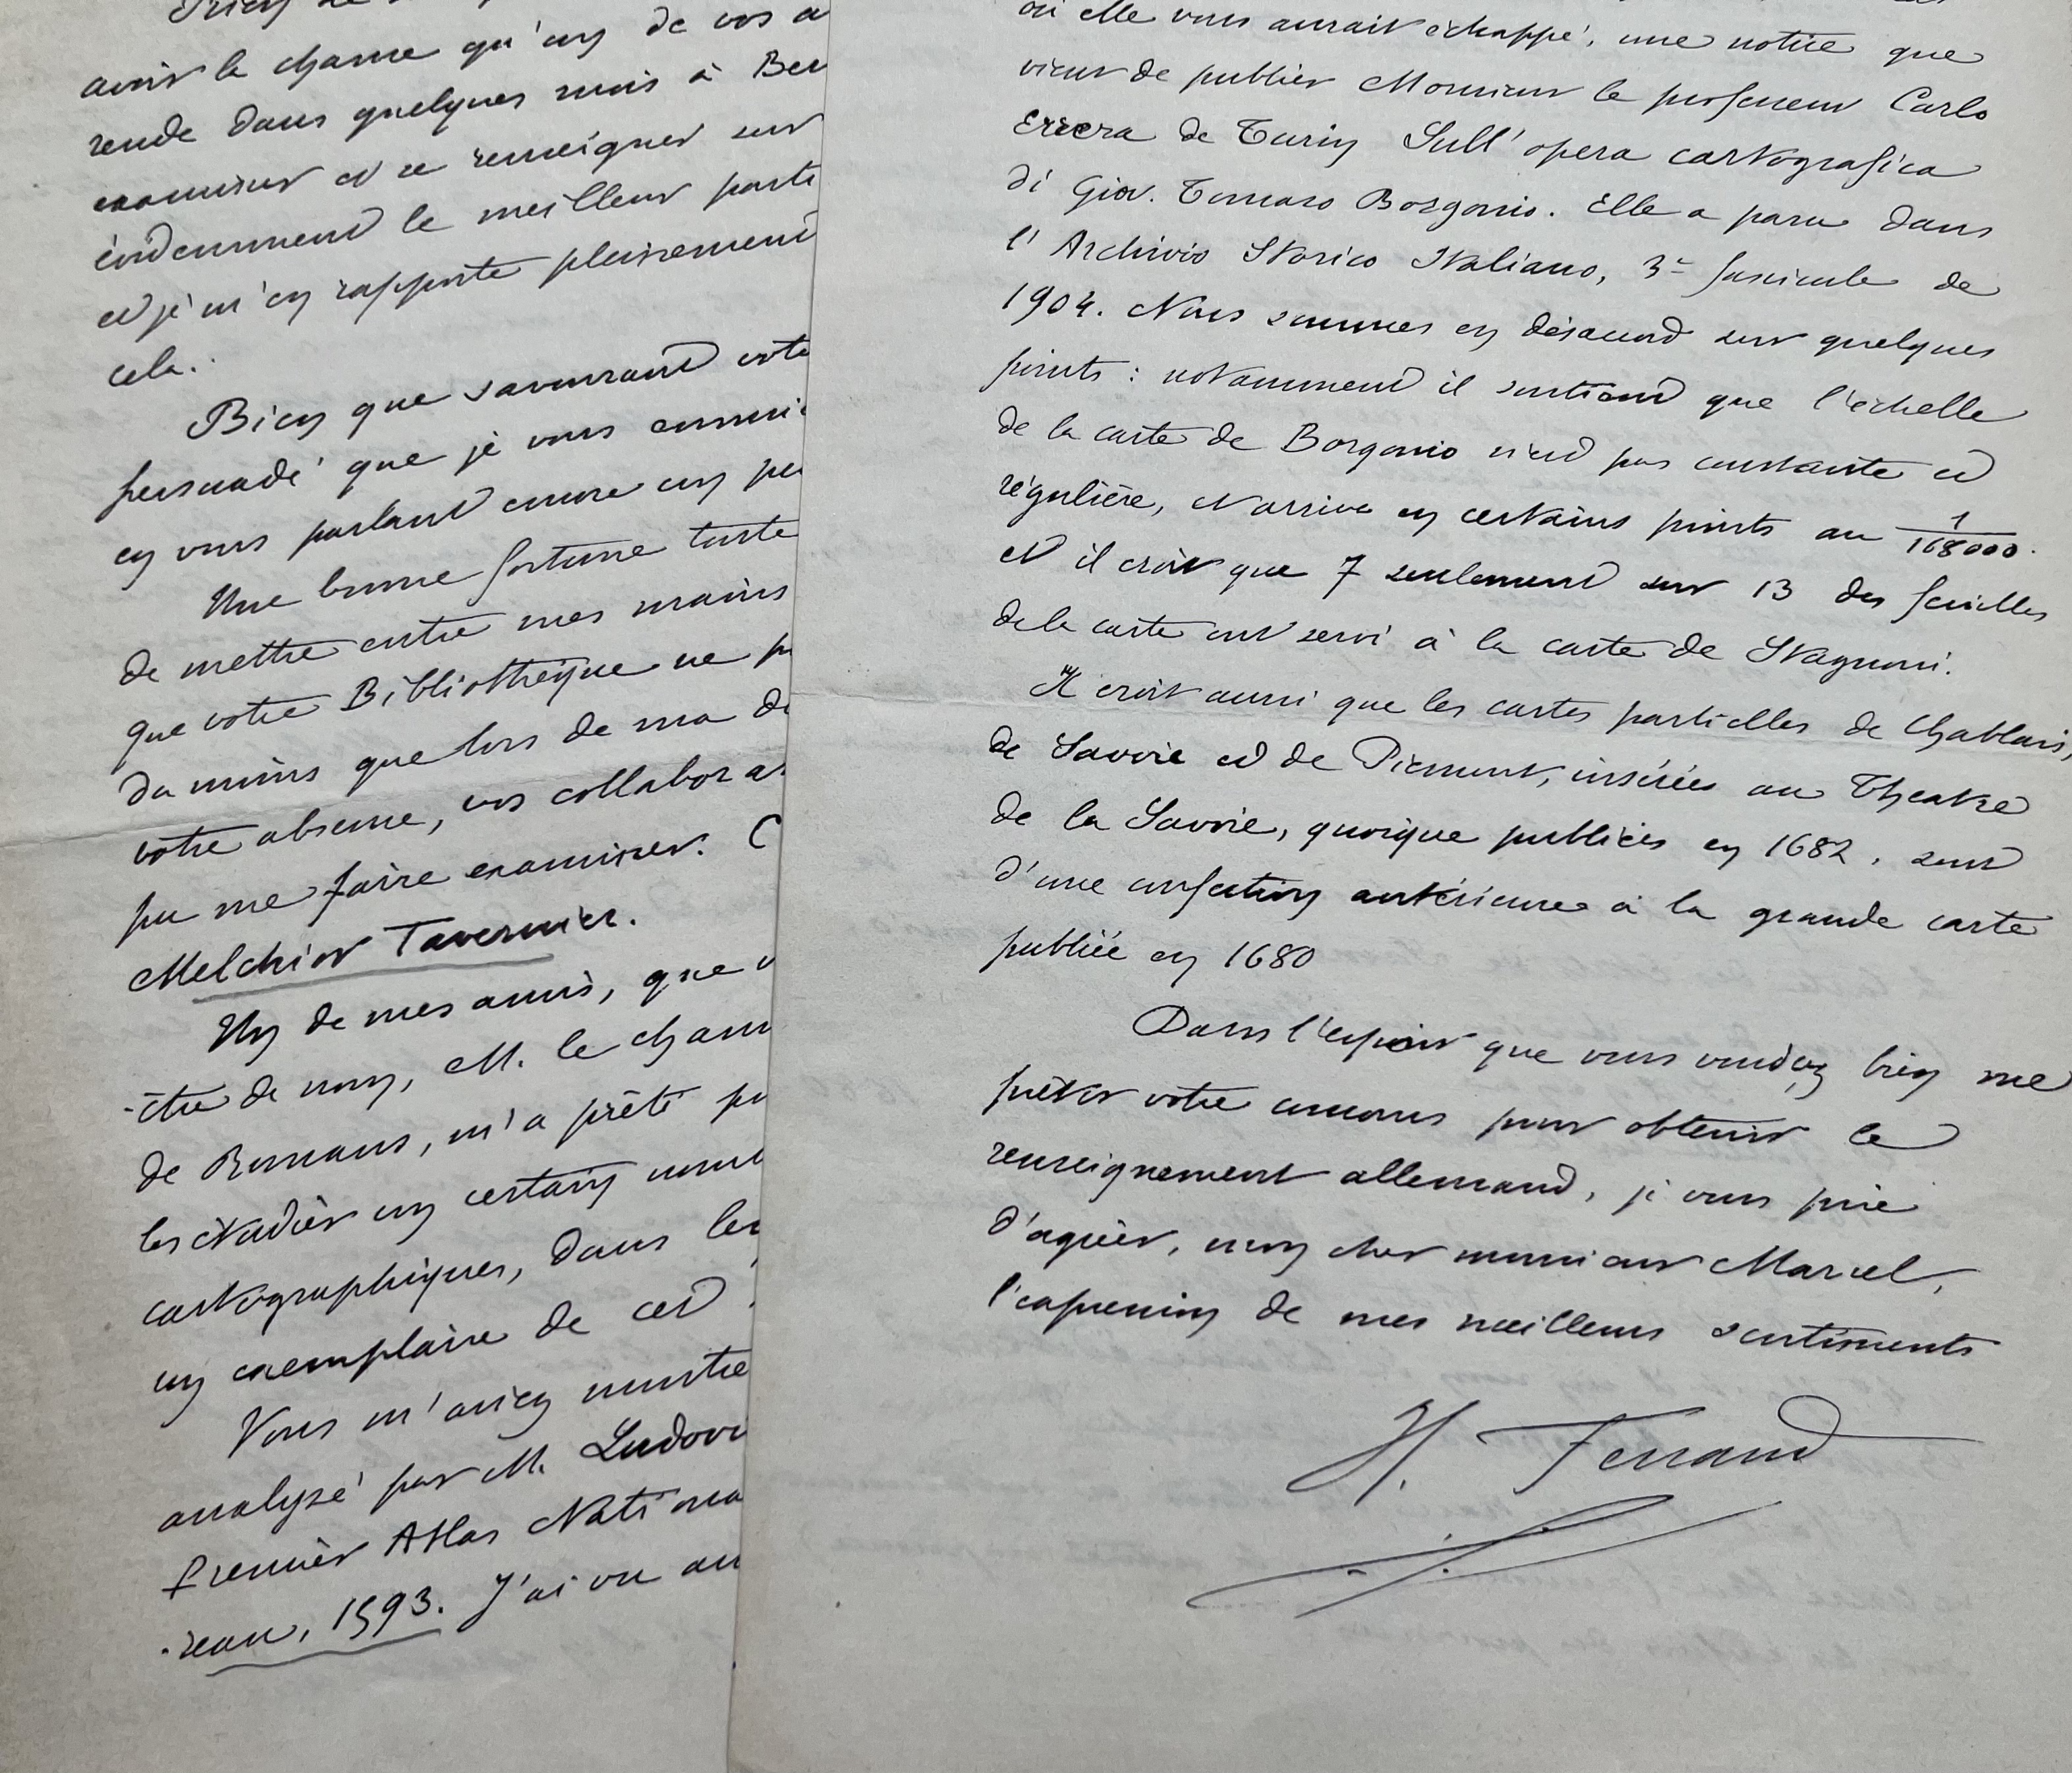 avoir la chance qu'un de vos a
rende dans quelques mois à Ber
examiner et se renseigner sur
évidemment le meilleur parti
et je m'en rapporte pleinement
cela.
Bien que savourant votr
persuadé que je vous ennui
en vous parlant encore un peu
Une bonne fortune toute
de mettre entre mes mains
que votre Bibliothèque ne p
du moins que lors de ma d
votre absence, vos collabora
pu me faire examiner. C
Melchior Tavernier.
Un de mes amis, que v
-être de nom, M. le chan
de Romans, m'a prêté po
les étudier un certain nom
cartographiques, dans les
un exemplaire de cet
Vous m'aviez montré
analysé par M. Ludovi
Premier Atlas Nationa
-reau, 1593. J'ai vu au
où elle vous aurait échappé, une notice que
vient de publier Monsieur le professeur Carlo
Errera de Turin Sull'opera cartografica
di Giov. Tomaso Borgonio. Elle a paru dans
l'Archivio Storico Italiano, 3e fascicule de
1904. Nous sommes en désaccord sur quelques
points : notamment il soutient que l'échelle
de la carte de Borgonio n'est pas constante et
régulière, et arrive en certains points au 1/168000.
et il croit que 7 seulement sur 13 des feuilles
de la carte ont servi à la carte de Stagnoni.
Il croit aussi que les cartes partielles de Chablais,
de Savoie et de Piemont, insérées au Theatre
de la Savoie, quoique publiées en 1682, sont
d'une confection antérieure à la grande carte
publiée en 1680
Dans l'espoir que vous voudrez bien me
prêter votre concours pour obtenir ce
renseignement allemand, je vous prie
d'agréer, mon cher monsieur Marcel,
l'expression de mes meilleurs sentiments
H. Ferrand